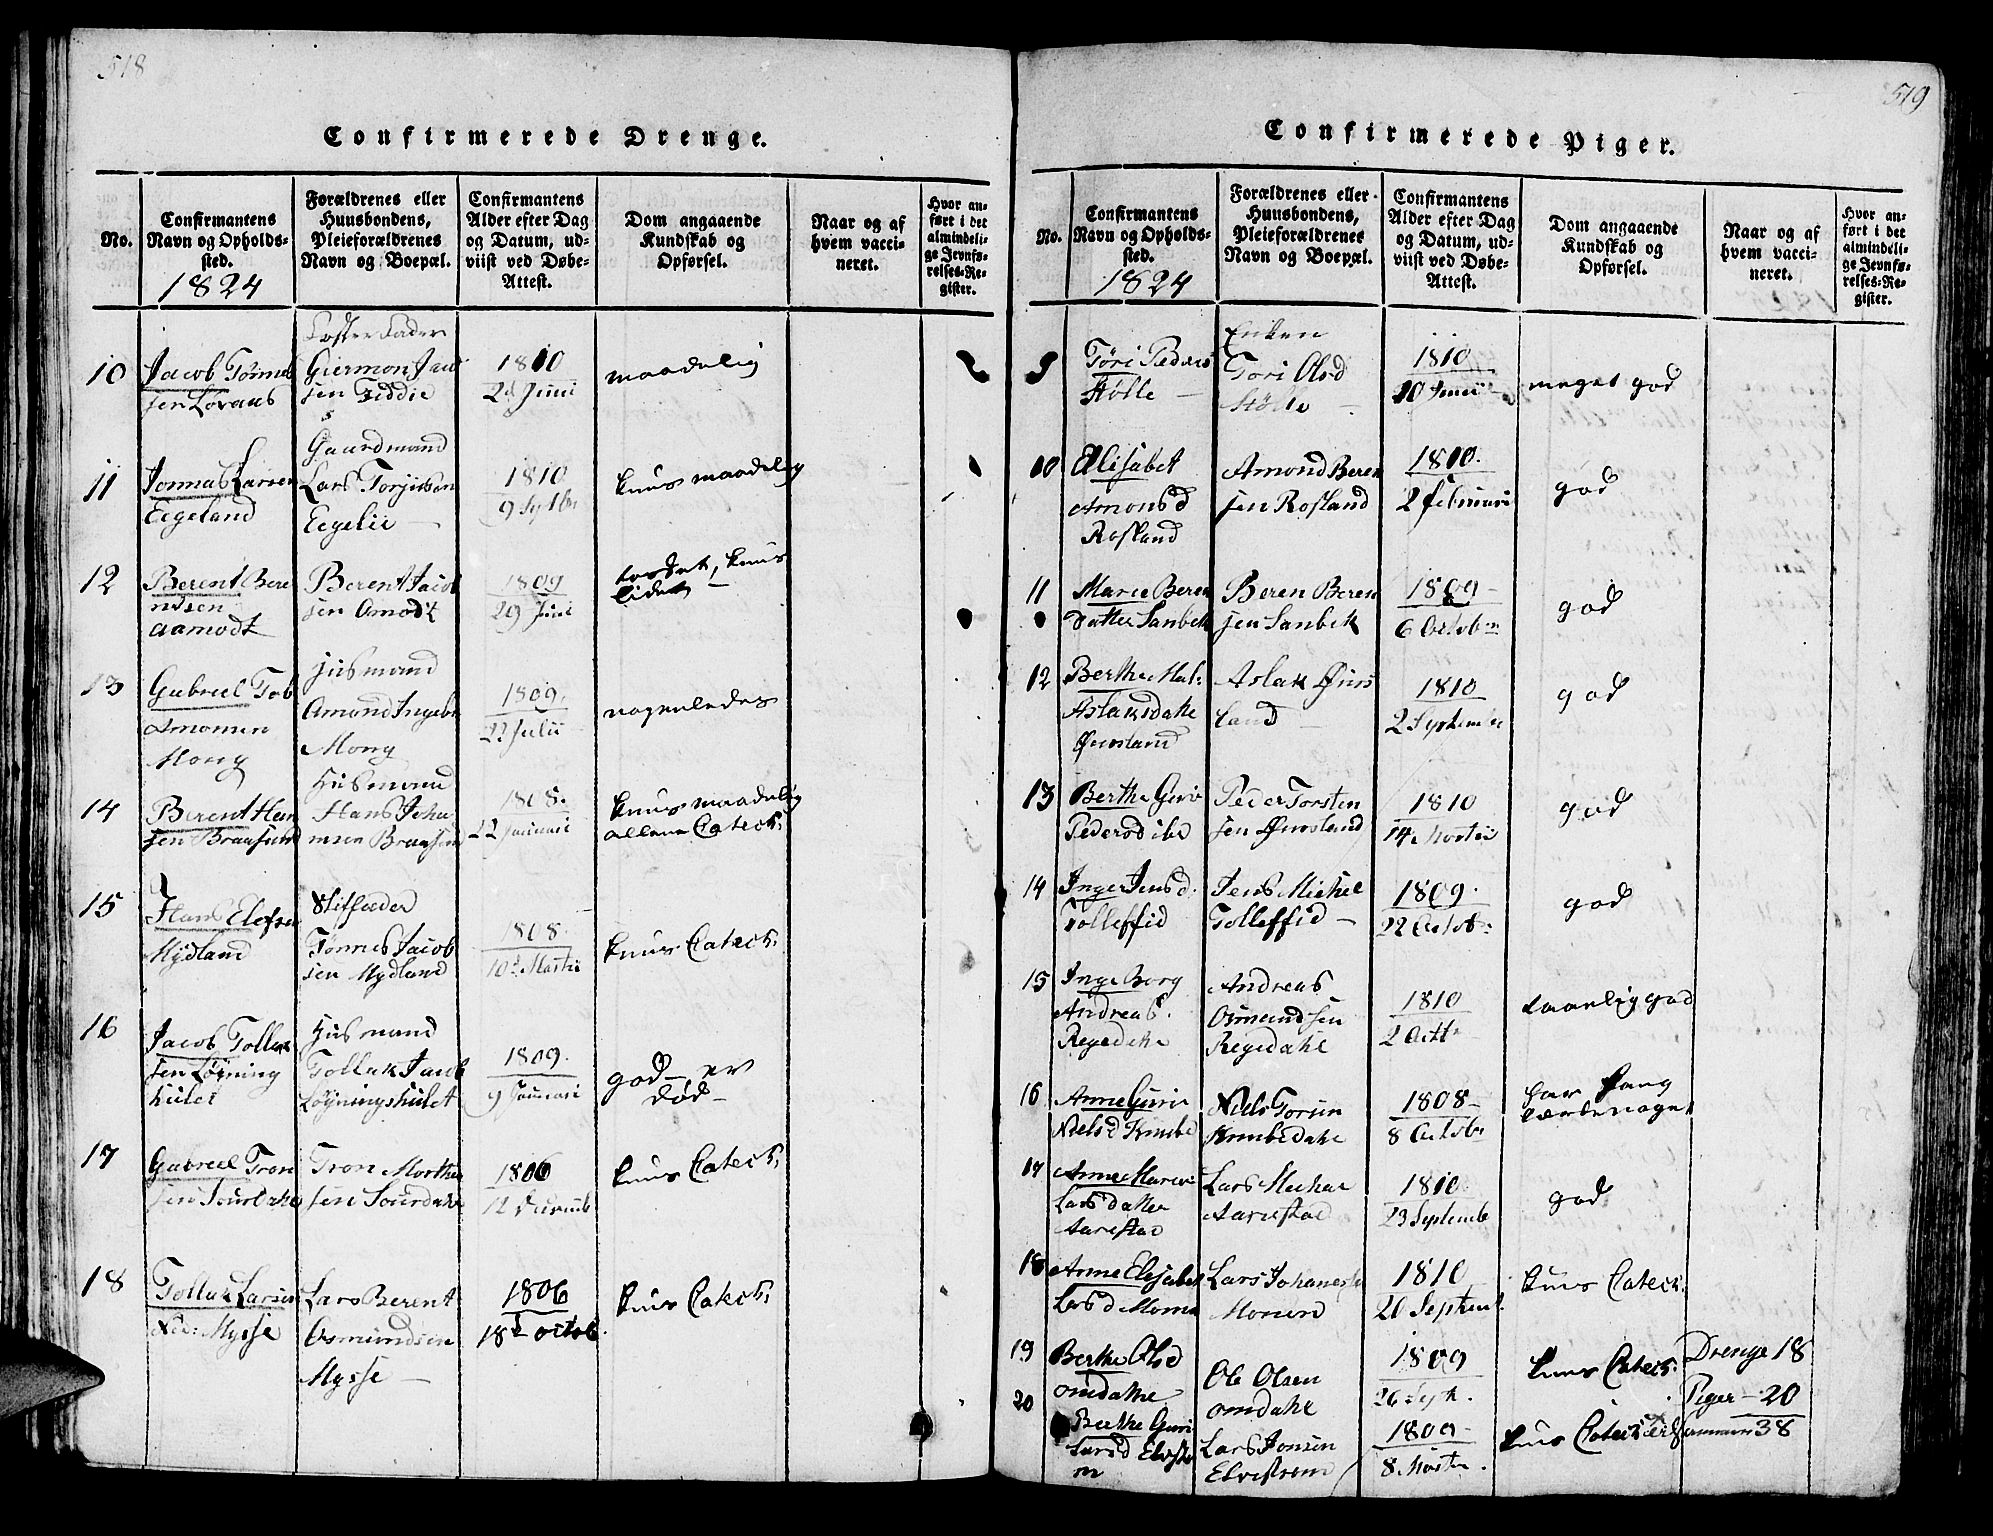 518
Confirmerede Drenge.
No.
Confirmantens
Navn og Opholds-
sted.
1824
Forældrenes eller
Huusbondens,
Pleieforældrenes
Navn og Boepæl.
Confirmantens
Alder efter Dag
og Datum, ud-
viist ved Døbe-
Attest.
Dom angaaende
Kundskab og
Opførsel.
Naar og af
hvem vacci-
neret.
Hvor an-
ført i det
almindeli-
ge Jevnfø-
relses-Re-
gister.
10
Jacob Tønnes
sen
Foster Fader
Giermon Jac
sen Feddie
1810
2d Juni
maadelig
11
Jonnas Larsen
Eegeland
Gaardmand
Lars Torjussen
Eegelie
1810
9 Sept
kuns maadelig
12
Berent Bere
ntsen
aamodt
Berent Jacob
sen Amodt
1809
29 Juni
kuns
lidet
13
Gabriel Tob
Amonsen
Mong
Husmand
Amond Ingebr
Mong
1809
22 Julii
nogenledes
14
Berent Han
sen Braasund
Husmand
Hans Joha
nsen Braasund
1808
22 Januari
kuns maadelig
allene Catech.
15
Hans Elefsen
Mydland
Stiffader
Tønnes Jacob
sen Mydland
1808
10d Martii
kuns Catech.
16
Jacob Tollak
sen Løyning
hulet
Husmand
Tollak Jacob
Løyningshulet
1809
9 Januari
god er
død
17
Gabriel Tron
sen Souredahl
Tron Morthen
sen Souredahl
1806
12 Decemb
kuns Catech.
18
Tollak Larsen
Ned: Mysse
Lars Berent
Osmundsen
Mysse
1806
18d octob.
kuns Catech.
519
Confirmerede Piger.
No.
Confirmantens
Navn og Opholds-
sted.
1824
Forældrenes eller
Huusbondens,
Pleieforældrenes
Navn og Boepæl.
Confirmantens
Alder efter Dag
og Datum, ud-
viist ved Døbe-
Attest.
Dom angaaende
Kundskab og
Opførsel.
Naar og af
hvem vacci-
neret.
Hvor an-
ført i det
almindeli-
ge Jevnfø-
relses-Re-
gister.
9
Tøri Peders
Støle
Enken
Tori Olsd
Støle
1810
10 Junii
meget god
10
Elisabet
Amonsd
Rosland
Amond Beren
sen Rosland
1810
2 Februari
god
11
Marie Beren
datter Sanbek
Beren Beren
sen Sanbek
1809
6 Octob
god
12
Berthe Mal.
Aslaksdatte
Øvrosland
Aslak Øvros
land
1810
2 Septembe
god
13
Berthe Guri
Pedersd ibd
Peder Torsten
sen Øvrosland
1810
14 Martii
god
14
Inger Jensd.
Tolleffid
Jens Michel
Tolleffid
1809
22 Octob:
god
15
Inge Borg
Andreas.
Regedahl
Andreas
Osmundsen
Regedahl
1810
2 Octb
taalig god
16
Anne Guri
Nielsd Knube
Niels Torsen
Knubedahl
1808
8 Octob
har lang
17
Anne Marie
Lars datter
Aarrestad
Lars Michae
Aarrestad
1810
23 Septemb
god
18
Anne Elisabet
Larsd Monen
Lars Johanes
Monen
1810
20 Septemb
kuns Catech.
19
Berthe Olsd
omdahl
Ole Olsen
omdahl
1809
26 Sept.
kuns Catech.
20
Berthe Guri
Larsd Elvestrø
m
Lars Jonsen
Elvestrøm
1809
8 Martii
kuns
Drenge 18
Piger - 20
Summa 38